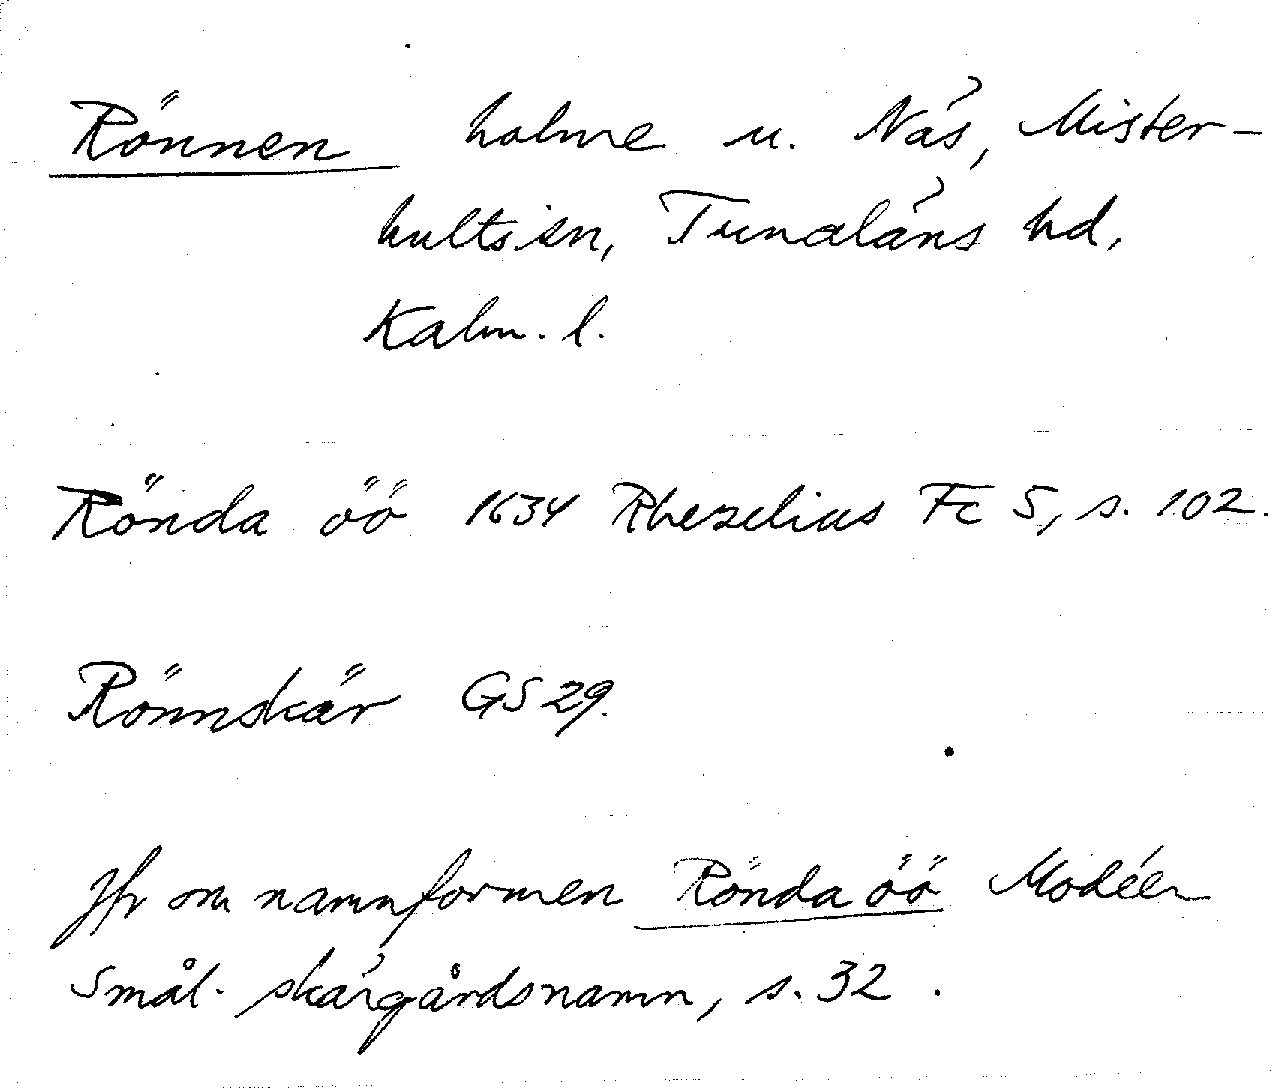 Rönnen holme u. Näs, Mister-
hults sn, Tunaläns hd,
Kalm. l.
Rönda öö 1634 Rhezelius Fc 5, s. 102.
Rönnskär GS 29.
Jfr om namnformen Rönda öö Modéer
Smål. skärgårdsnamn, s. 32.